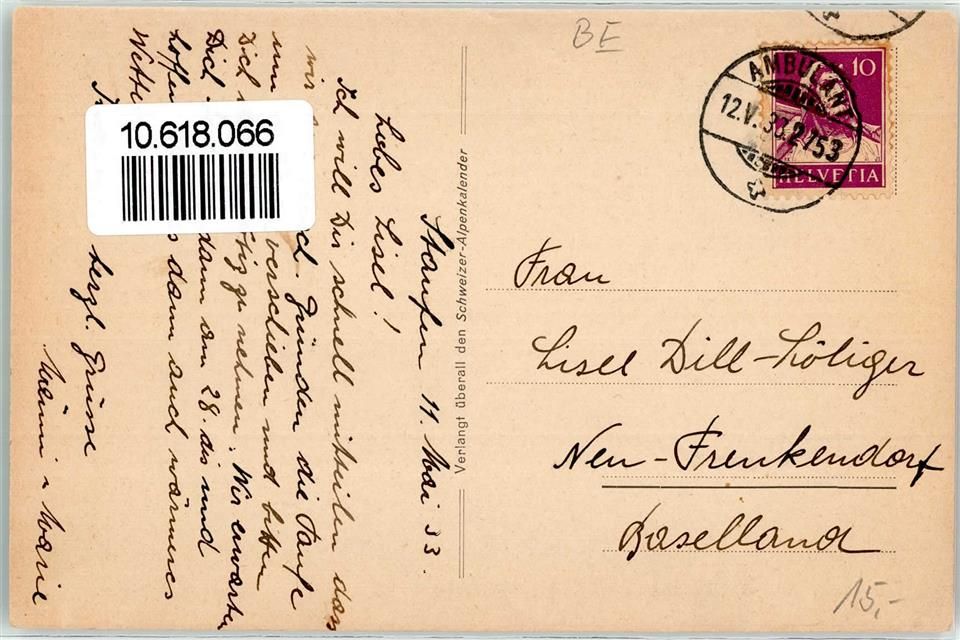 BE
AMBULANT
12.V.33.2753
10
HELVETIA
10.618.066
Staufen 11. Mai 33.
Liebes Lisel!
Ich will Dir schnell mitteilen dass
wir Gründen die Taufe
verschieben und bitten
Dich zu nehmen. Wir erwarten
Dich dann am 28. dis und
hoffen dann auch wärmeres
Wette
herzl. Grüsse
Marie
Verlangt überall den Schweizer-Alpenkalender
Frau
Lisel Dill-Höliger
Neu-Frenkendorf
Baselland
15,-